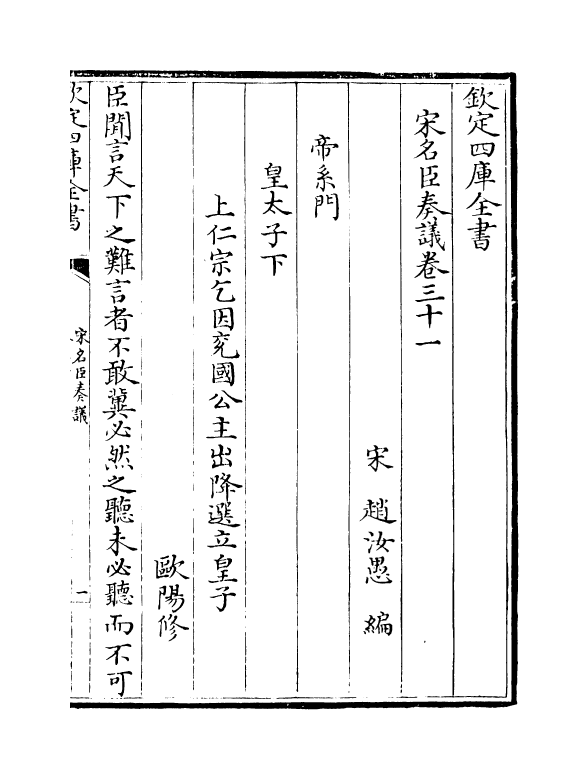 欽定四庫全書
宋名臣奏議卷三十一
宋 趙汝愚 編
帝系門
皇太子下
上仁宗乞因兖國公主出降選立皇子
歐陽修
臣聞言天下之難言者不敢冀必然之聽未必聽而不可
欽定四庫全書
宋名臣奏議
一